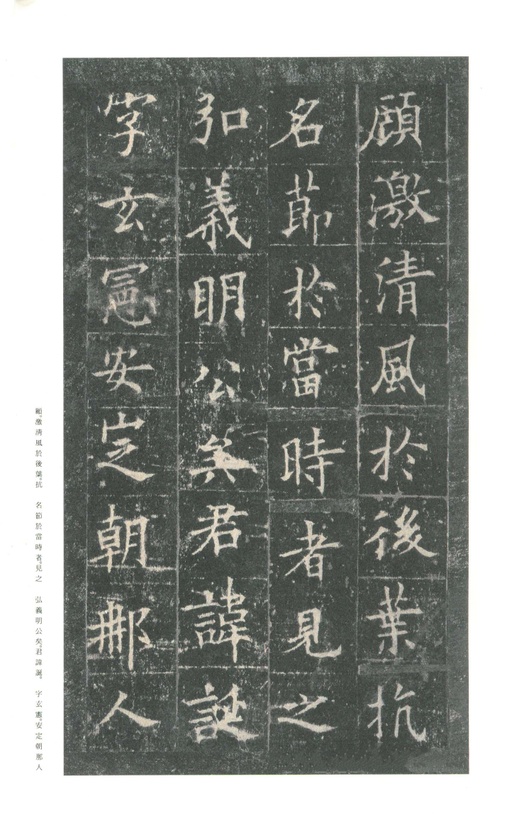 顧激清風於後葉抗
名節於當時者見之
弘義明公矣君諱誕
字玄憲安定朝那人
顧激清風於後葉抗 名節於當時者見之 弘義明公矣君諱誕 字玄憲安定朝那人